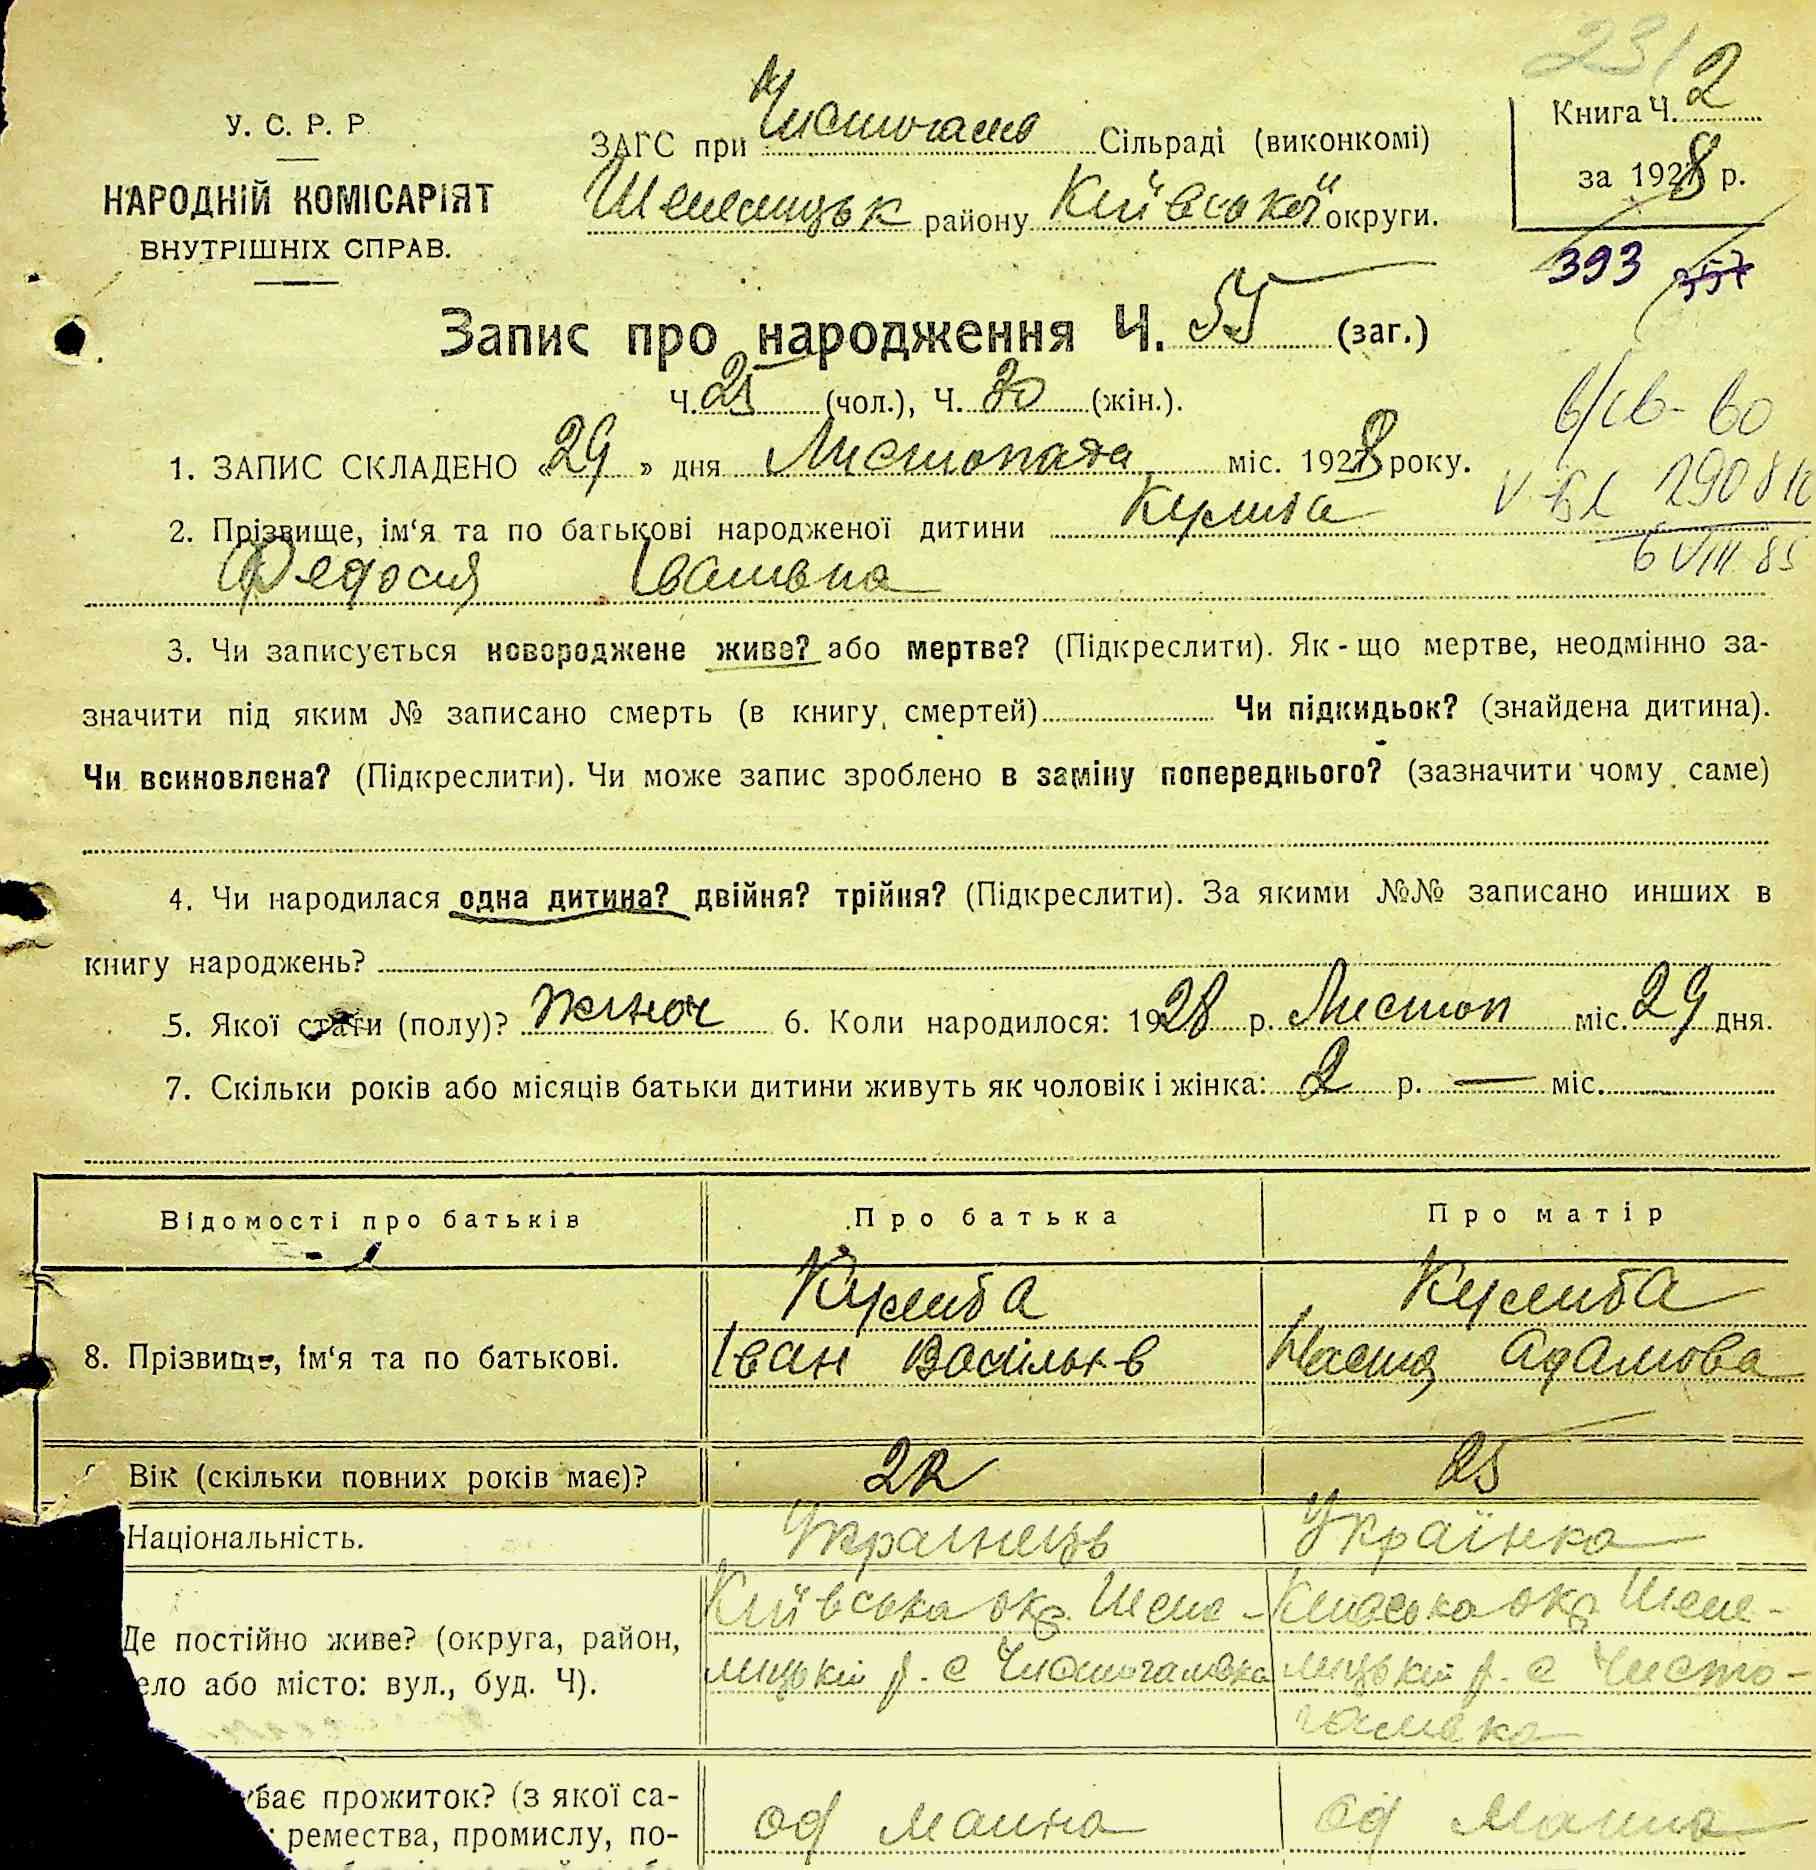 231
У. С. Р. Р.
НАРОДНІЙ КОМІСАРІЯТ
ВНУТРІШНІХ СПРАВ.
ЗАГС при Чистогалів Сільраді (виконкомі)
Шепелицьк району Київської округи.
Книга Ч. 2
за 1928 р.
393 357
Запис про народження Ч. 55 (заг.)
Ч. 25 (чол.), Ч. 30 (жін.).
1. ЗАПИС СКЛАДЕНО «29» дня Листопада міс. 1928 року.
2. Прізвище, ім‘я та по батькові народженої дитини Кулиба
Федосия Івановна
6 VIII 85
3. Чи записується новороджене живе? або мертве? (Підкреслити). Як-що мертве, неодмінно за-
значити під яким № записано смерть (в книгу смертей) Чи підкидьок? (знайдена дитина).
Чи всиновлена? (Підкреслити). Чи може запис зроблено в заміну попереднього? (зазначити чому саме)
4. Чи народилася одна дитина? двійня? трійня? (Підкреслити). За якими №№ записано инших в
книгу народжень?
5. Якої стати (полу)? жіноч 6. Коли народилося: 1928 р. Листоп міс. 29 дня.
7. Скільки років або місяців батьки дитини живуть як чоловік і жінка: 2 р. — міс.
Відомості про батьків Про батька Про матір
Кулиба Кулиба
8. Прізвище, ім‘я та по батькові. Іван Васільєв Настя Адамова
Вік (скільки повних років має)? 22 25
Національність. Українець Українка
Київська окр. Шепе- Київська окр. Шепе-
Де постійно живе? (округа, район, лицький р. с Чистогалівка лицький р. с Чисто-
ело або місто: вул., буд. Ч). галівка
уває прожиток? (з якої са-
ремества, промислу, по- од лана од лана